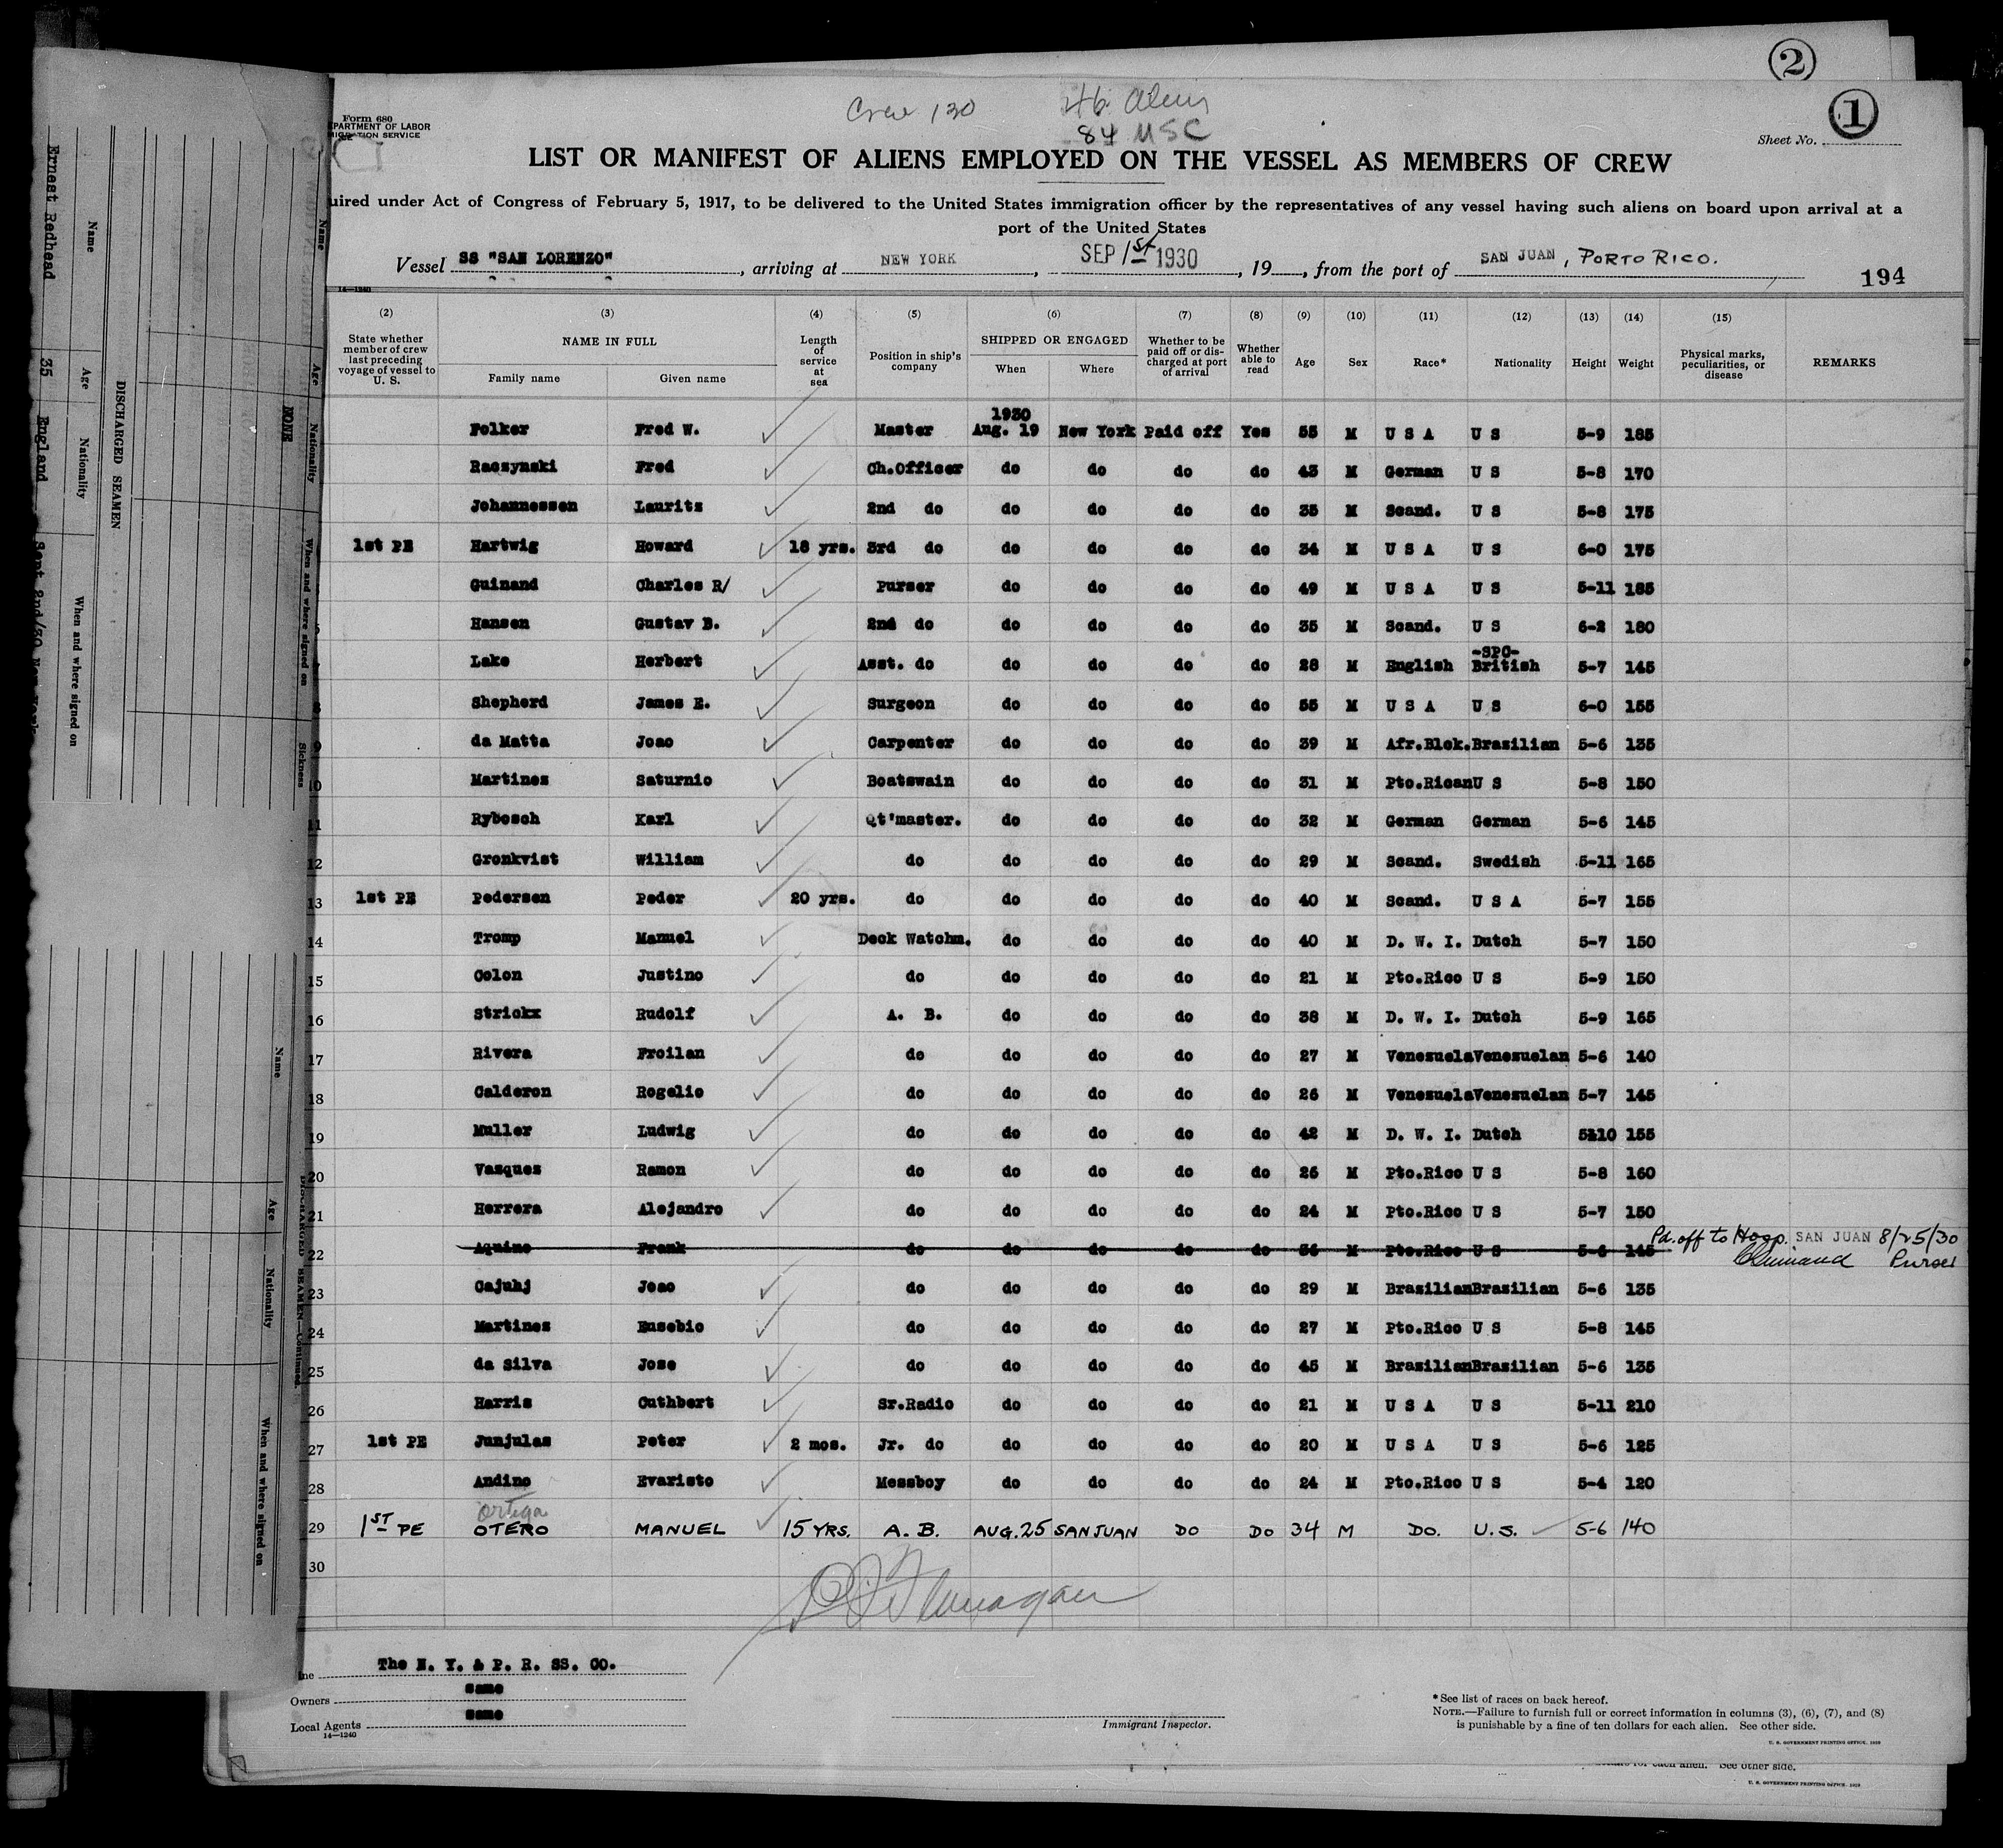 2
1
Crew 130
46 Alens
84 USC
Form 680
PARTMENT OF LABOR
MIGRATION SERVICE
Sheet No.
LIST OR MANIFEST OF ALIENS EMPLOYED ON THE VESSEL AS MEMBERS OF CREW
uired under Act of Congress of February 5, 1917, to be delivered to the United States immigration officer by the representatives of any vessel having such aliens on board upon arrival at a
port of the United States
Vessel SS "SAN LORENZO", arriving at NEW YORK, SEP 1st 1930, 19, from the port of SAN JUAN, PORTO RICO.
194
14—1240
(2) (3) (4) (5) (6) (7) (8) (9) (10) (11) (12) (13) (14) (15)
State whether member of crew last preceding voyage of vessel to U. S. NAME IN FULL Family name Given name Length of service at sea Position in ship's company SHIPPED OR ENGAGED When Where Whether to be paid off or discharged at port of arrival Whether able to read Age Sex Race* Nationality Height Weight Physical marks, peculiarities, or disease REMARKS
1930
Folker Fred W. Master Aug. 19 New York Paid off Yes 55 M U S A U S 5-9 185
Raczynski Fred Ch.Officer do do do do 43 M German U S 5-8 170
Johannessen Lauritz 2nd do do do do do 35 M Scand. U S 5-8 175
1st PE Hartwig Howard 18 yrs. 3rd do do do do do 34 M U S A U S 6-0 175
Guinand Charles R/ Purser do do do do 49 M U S A U S 5-11 185
Hansen Gustav B. 2nd do do do do do 35 M Scand. U S 6-2 180
-SPO-
Lake Herbert Asst. do do do do do 28 M English British 5-7 145
8 Shepherd James E. Surgeon do do do do 55 M U S A U S 6-0 155
9 da Matta Joao Carpenter do do do do 39 M Afr.Blck. Brazilian 5-6 135
10 Martines Saturnio Boatswain do do do do 31 M Pto.Rican U S 5-8 150
11 Rybosch Karl Qt'master. do do do do 32 M German German 5-6 145
12 Gronkvist William do do do do do 29 M Scand. Swedish 5-11 165
13 1st PE Pedersen Peder 20 yrs. do do do do do 40 M Scand. U S A 5-7 155
14 Tromp Manuel Deck Watchm. do do do do 40 M D. W. I. Dutch 5-7 150
15 Colon Justino do do do do do 21 M Pto.Rico U S 5-9 150
16 Strickx Rudolf A. B. do do do do 38 M D. W. I. Dutch 5-9 165
17 Rivera Froilan do do do do do 27 M Venezuela Venezuelan 5-6 140
18 Calderon Rogelio do do do do do 26 M Venezuela Venezuelan 5-7 145
19 Muller Ludwig do do do do do 42 M D. W. I. Dutch 5-10 155
20 Vasques Ramon do do do do do 26 M Pto.Rico U S 5-8 160
21 Herrera Alejandro do do do do do 24 M Pto.Rico U S 5-7 150
22 Aquino Frank do do do do do 36 M Pto.Rico U S 5-6 145 Pd. off to Hosp. SAN JUAN 8/25/30
CGuinand Purser
23 Cajuhj Joao do do do do do 29 M Brazilian Brazilian 5-6 135
24 Martines Eusebio do do do do do 27 M Pto.Rico U S 5-8 145
25 da Silva Jose do do do do do 45 M Brazilian Brazilian 5-6 135
26 Harris Cuthbert Sr.Radio do do do do 21 M U S A U S 5-11 210
27 1st PE Junjulas Peter 2 mos. Jr. do do do do do 20 M U S A U S 5-6 125
28 Andino Evaristo Messboy do do do do 24 M Pto.Rico U S 5-4 120
Ortega
29 1ST PE OTERO MANUEL 15 YRS. A. B. AUG. 25 SAN JUAN DO DO 34 M DO. U. S. 5-6 140
30
Flanagan
ine The N. Y. & P. R. SS. CO.
Owners same
Local Agents same
14—1240
Immigrant Inspector.
*See list of races on back hereof.
NOTE.—Failure to furnish full or correct information in columns (3), (6), (7), and (8)
is punishable by a fine of ten dollars for each alien. See other side.
U. S. GOVERNMENT PRINTING OFFICE. 1929
for each alien. See other side.
U. S. GOVERNMENT PRINTING OFFICE.
Name Age Nationality When and where signed on
DISCHARGED SEAMEN
Ernest Redhead 35 England Sept 2nd/30 New York
Name Age Nationality When and where signed on Sickness
NONE
DISCHARGED SEAMEN—Continued.
Name Age Nationality When and where signed on